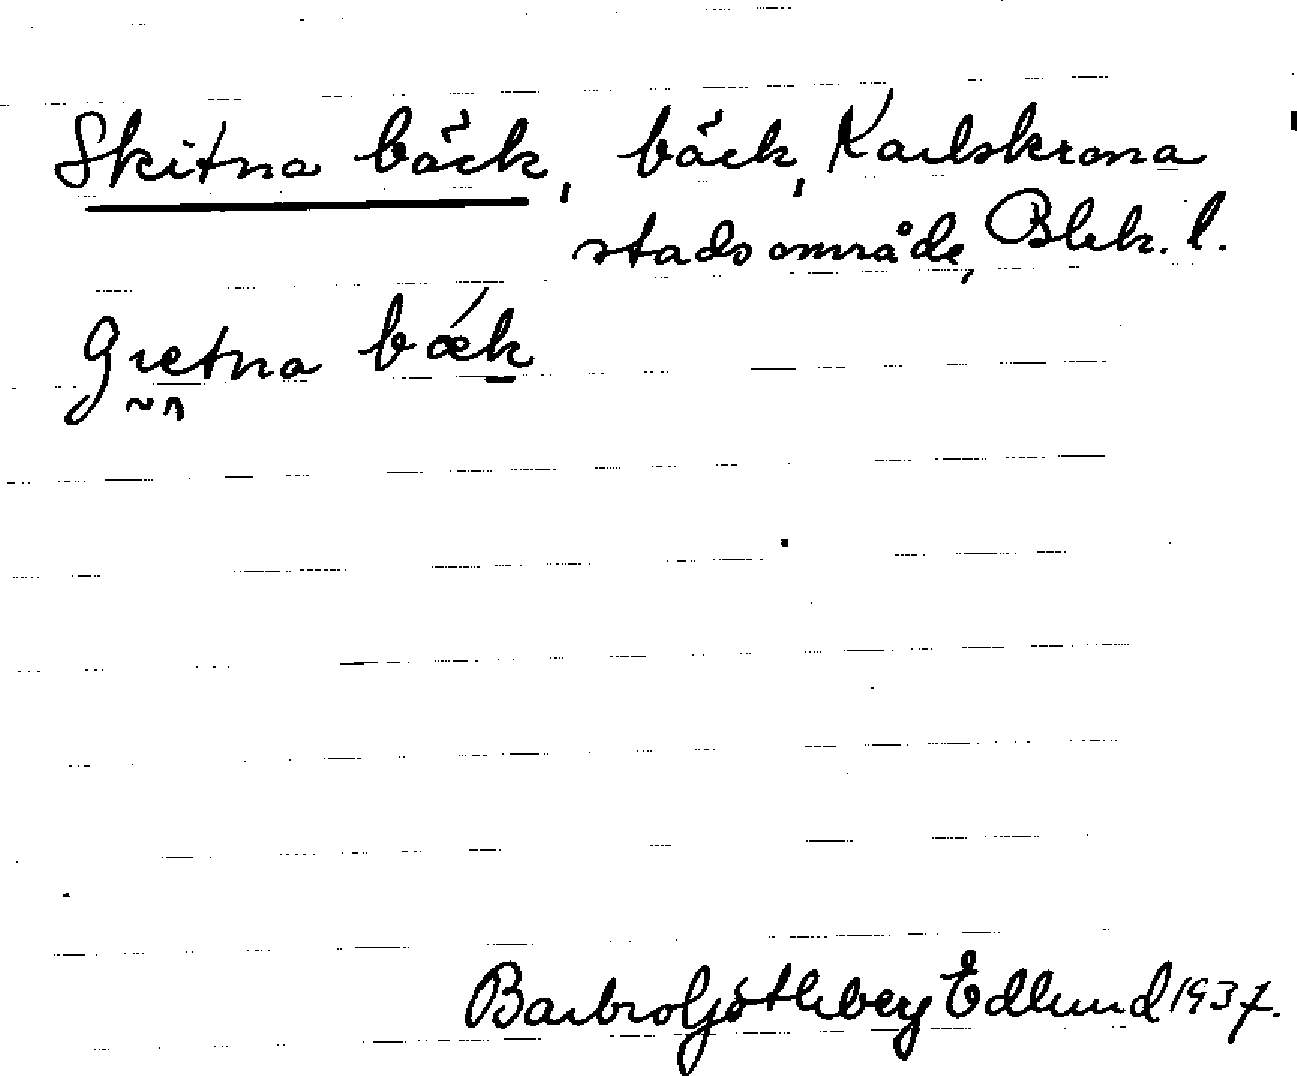 Skitna bäck, bäck, Karlskrona
stadsområde, Blek. l.
bǽk
Barbro Götlebey Edlund 1937.